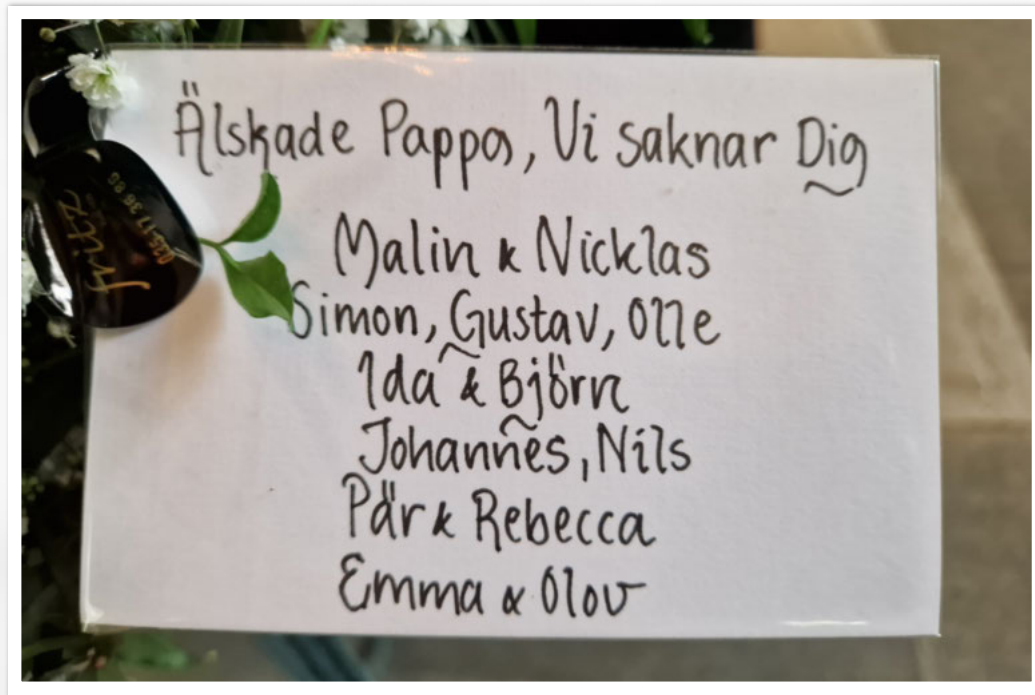 Älskade Pappa, Vi saknar Dig
Malin & Nicklas
Simon, Gustav, Olle
Ida & Björn
Johannes, Nils
Pär & Rebecca
Emma & Olov